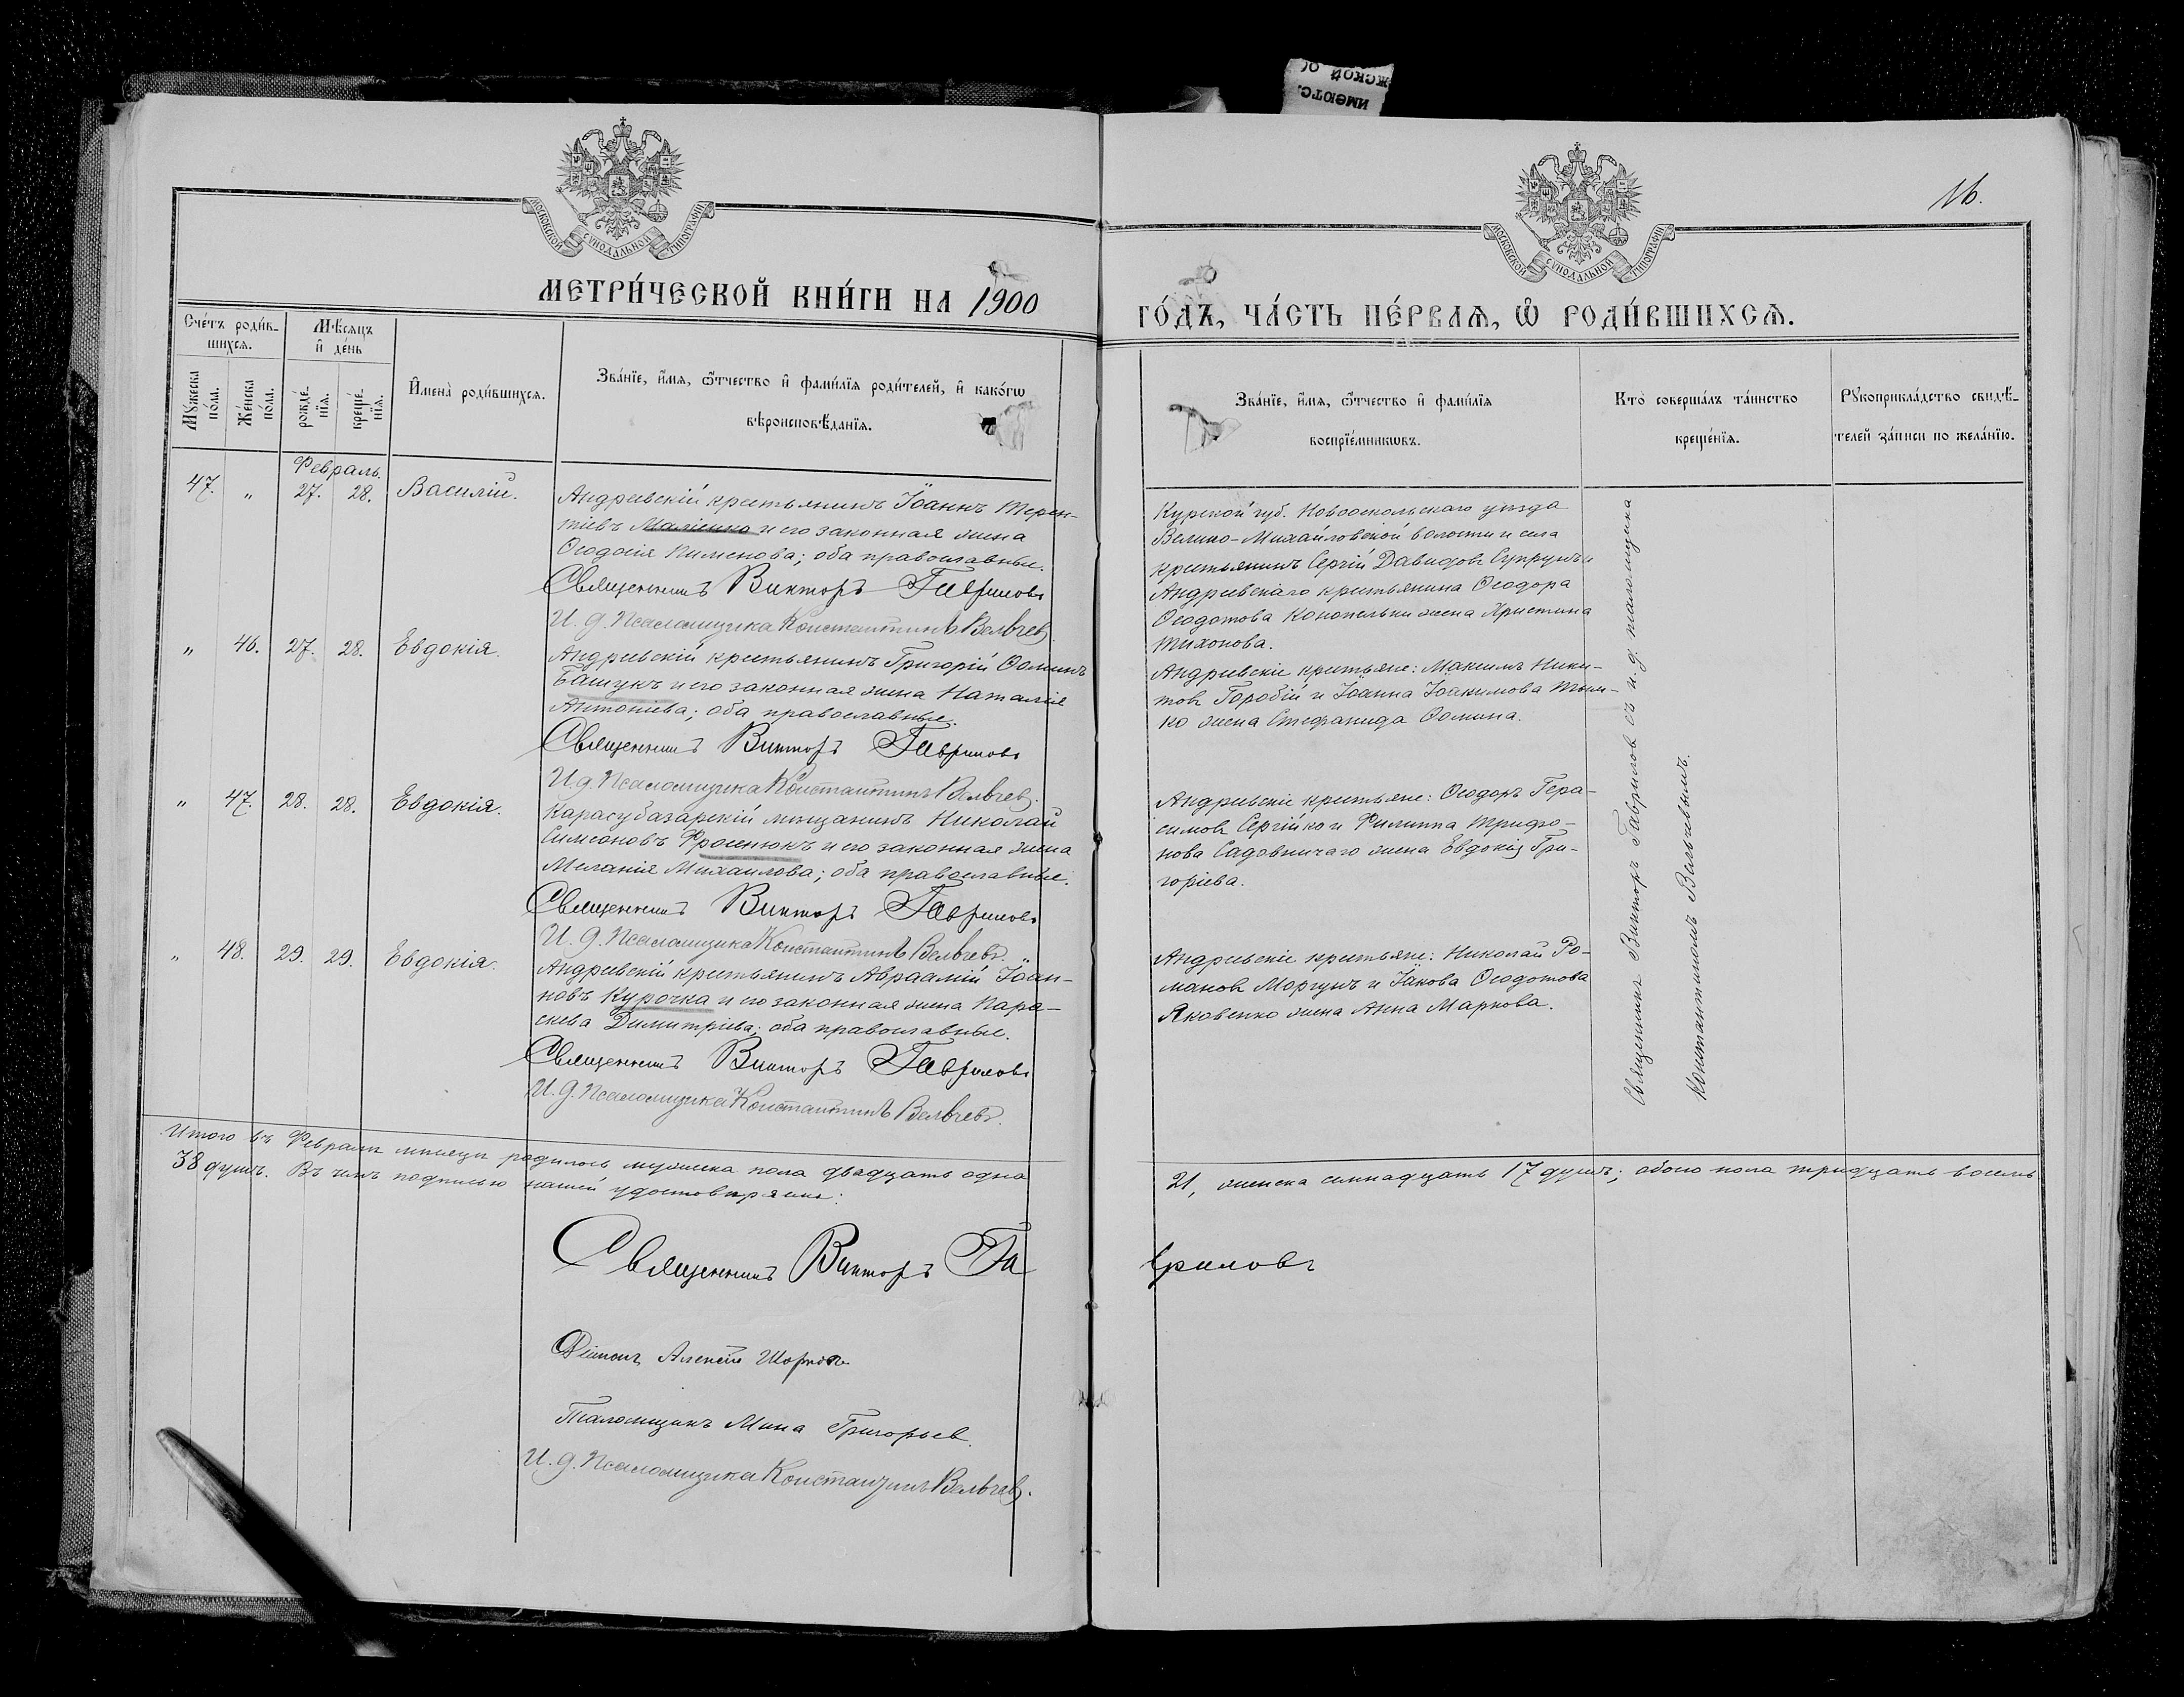 16.
МОСКОВСКОЙ СѴНОДАЛЬНОЙ ТИПОГРАФІИ
МОСКОВСКОЙ СѴНОДАЛЬНОЙ ТИПОГРАФІИ
МЕТРИ́ЧЕСКОЙ КНИ́ГИ НА 1900
ГО́ДЪ, ЧА́СТЬ ПЕ́РВАѦ, Ѡ РОДИ́ВШИХСѦ.
Сче́тъ роди́в-
шихсѧ.
Мꙋжеска по́ла.
Же́нска по́ла.
Мѣ́сяцъ
и де́нь
рожде́-
нїѧ.
креще́-
нїѧ.
Имена̀ роди́вшихсѧ.
Зва́нїе, и́мѧ, ѻ҆́тчество и фами́лїѧ роди́телей, и како́гѡ
вѣроисповѣ́данїѧ.
Зва́нїе, и́мѧ, ѻ҆́тчество и фами́лїѧ
воспрїе́мникѡвъ.
Кто̀ соверша́лъ та́инство
креще́нїѧ.
Рꙋкоприкла́дство свидѣ́-
телей за́писи по жела́нїю.
Февраль.
47. " 27. 28. Василій.
Андреевскій крестьянинъ Іоаннъ Терен-
тіевъ Маліенко и его законная жена
Ѳеодосія Пименова; оба православные.
Священникъ Викторъ Гавриловъ
И. д. Псаломщика Константинъ Вельчев
Курской губ. Новооскольскаго уѣзда
Велико-Михайловской волости и села
крестьянинъ Сергій Давидовъ Супрунъ и
Андреевскаго крестьянина Ѳеодора
Ѳеодотова Конопельки жена Христина
Тихонова.
" 46. 27. 28. Евдокія.
Андреевскій крестьянинъ Григорій Ѳоминъ
Башукъ и его законная жена Наталія
Антоніева; оба православные.
Священникъ Викторъ Гавриловъ
И. д. Псаломщика Константинъ Вельчев.
Андреевскіе крестьяне: Максимъ Ники-
товъ Горобій и Іоанна Іоакимова
жена Стефанида Ѳомина.
" 47. 28. 28. Евдокія.
Карасубазарскій мѣщанинъ Николай
Симеоновъ Фросенюкъ и его законная жена
Меланія Михаилова; оба православные.
Священникъ Викторъ Гавриловъ
И. д. Псаломщика Константинъ Вельчевъ.
Андреевскіе крестьяне: Ѳеодоръ Гера-
симовъ Сергійко и Филиппа Трифо-
нова Садовничаго жена Евдокія Гри-
горіева.
" 48. 29. 29. Евдокія.
Андреевскій крестьянинъ Авраамій Іоан-
новъ Курочка и его законная жена Пара-
скева Димитріева; оба православные.
Священникъ Викторъ Гавриловъ
И. д. Псаломщика Константинъ Вельчевъ.
Андреевскіе крестьяне: Николай Ро-
мановъ Моргунъ и Іакова Ѳеодотова
Яковенко жена Анна Маркова.
Священникъ Викторъ Гавриловъ съ и. д. псаломщика
Константиномъ Вельчевымъ.
Итого въ Февралѣ мѣсяцѣ родилось мужеска пола двадцать одна
21, женска семнадцать 17 душъ; обоего пола тридцать восемь
38 душъ. Въ чемъ подписью нашей удостовѣряемъ:
Священникъ Викторъ Гавриловъ
Діаконъ Алексій
Псаломщикъ Мина Григорьев.
И. д. Псаломщика Константинъ Вельчев.